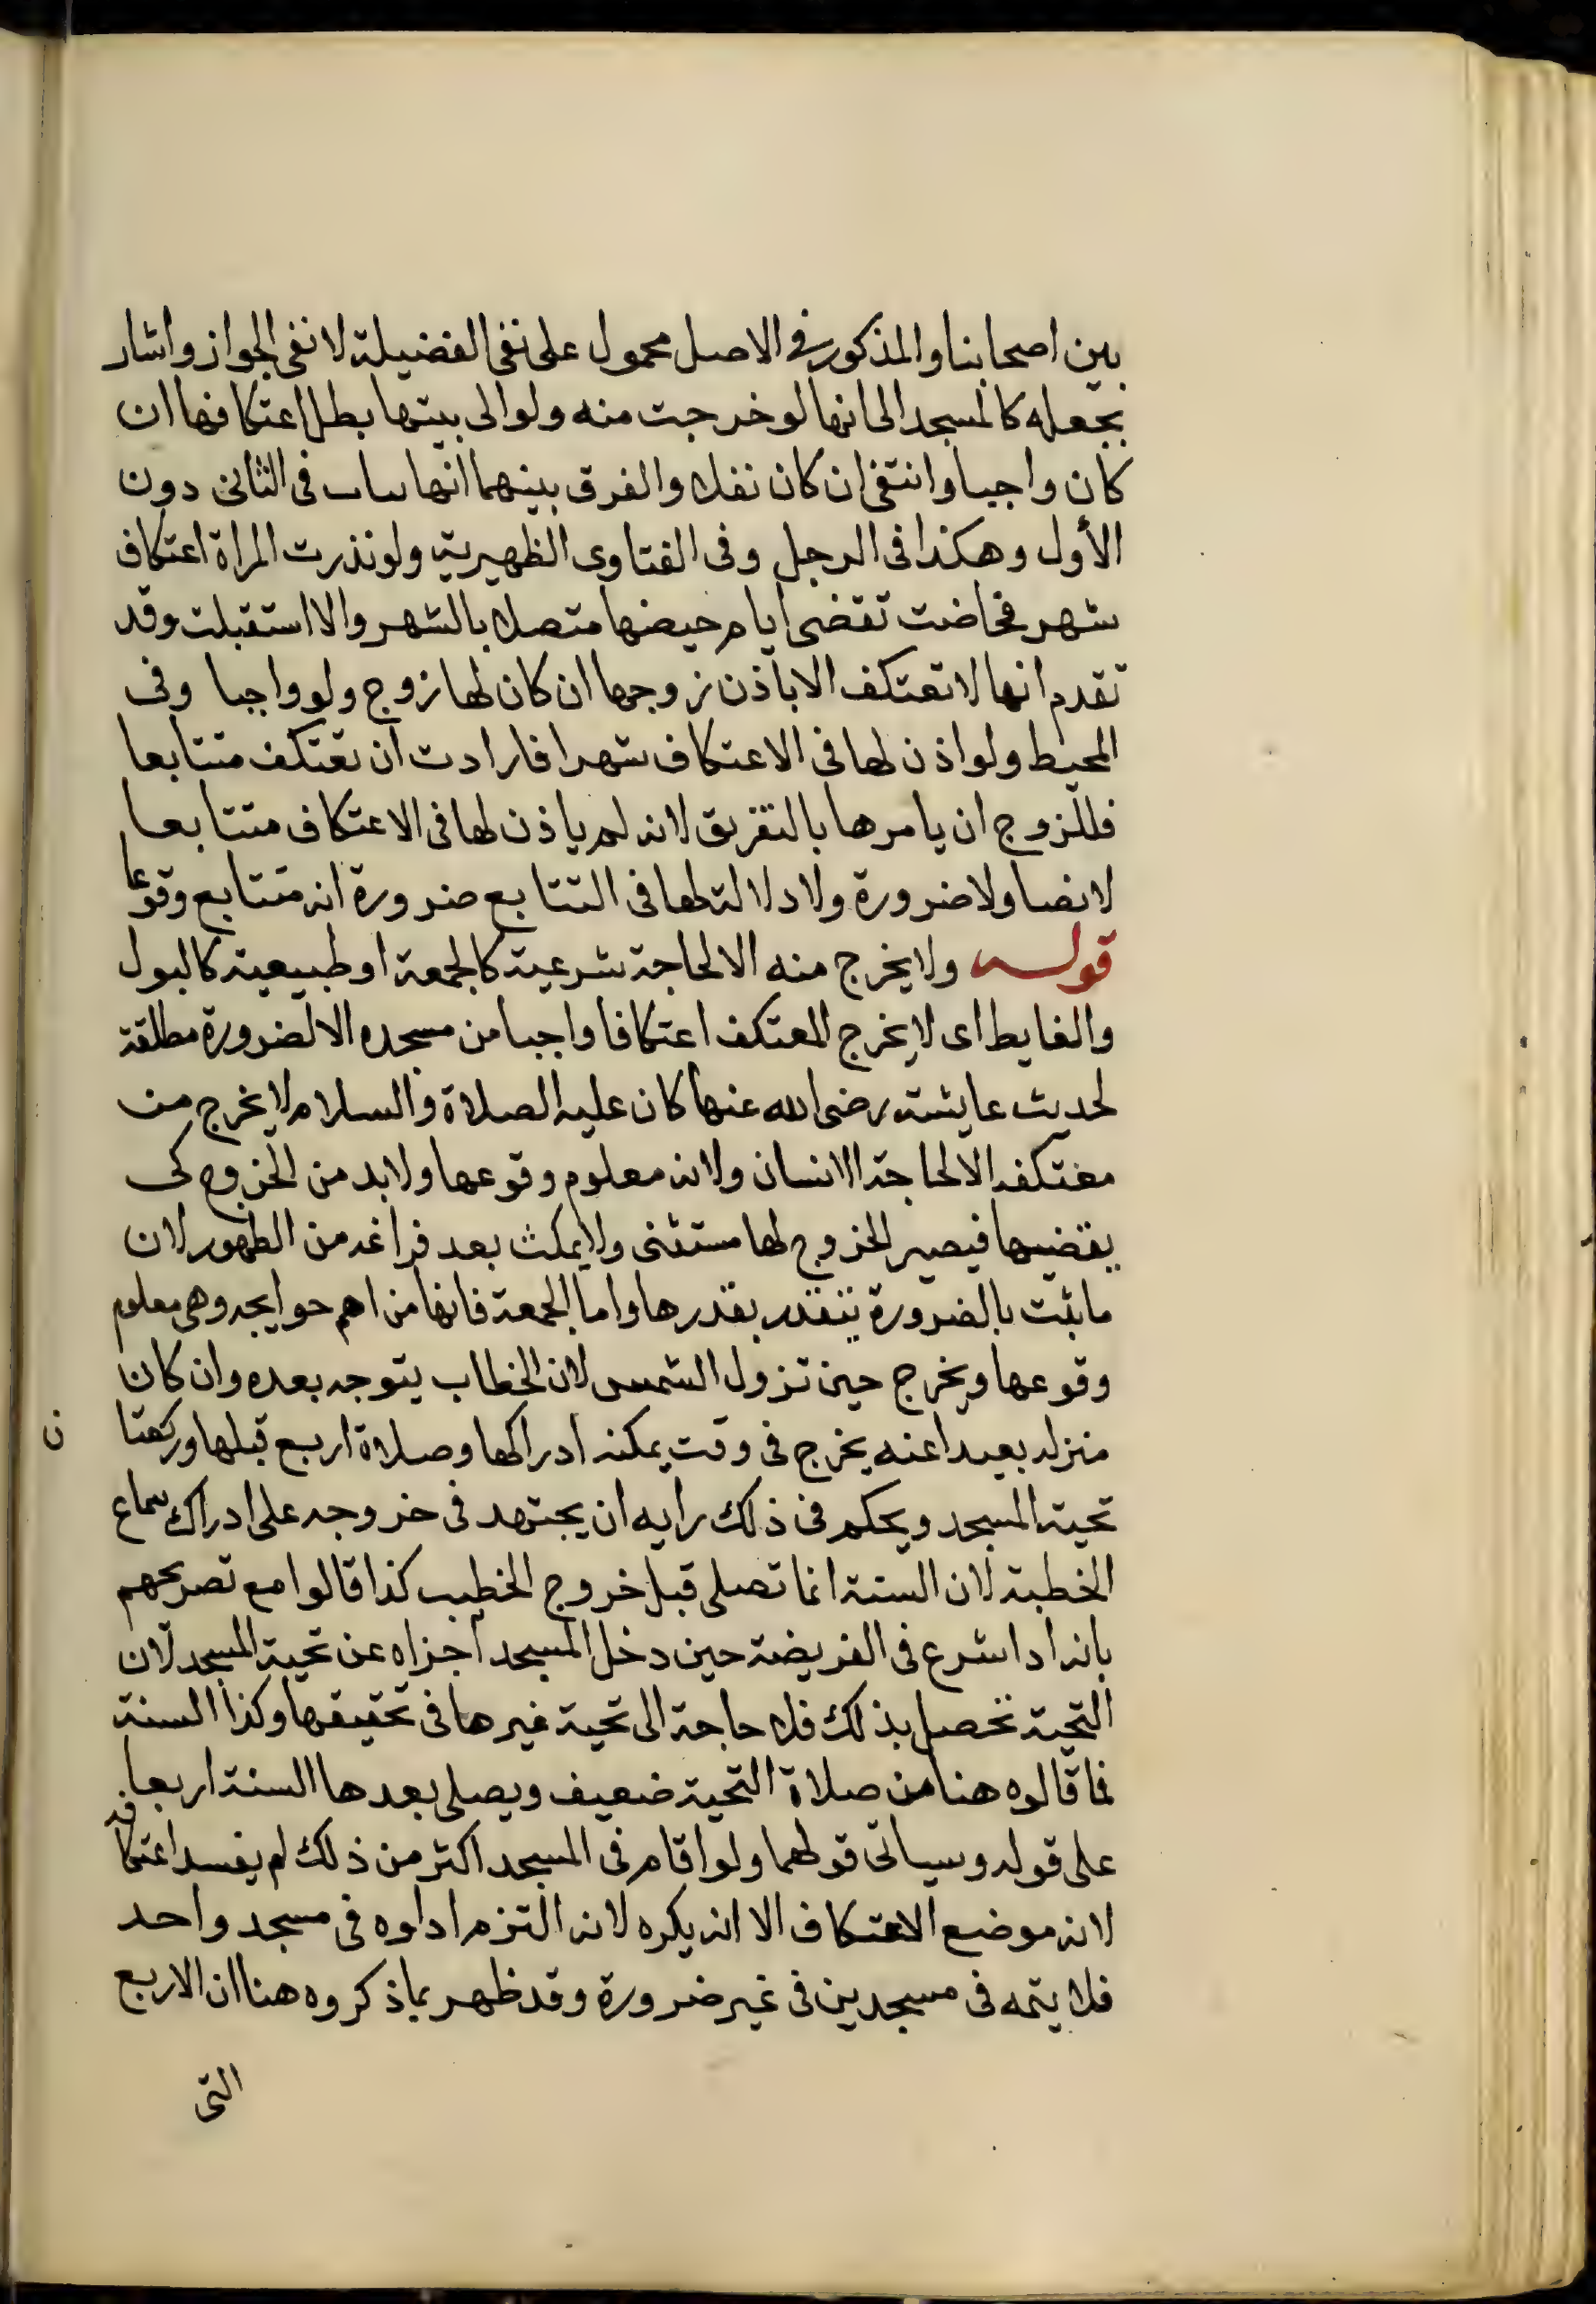 بين اصحابنا والمذكور في الاصل محمول على نفى الفضيلة لا نفى الجواز واشار
بجعله كالمسجد الى انها لو خرجت منه ولو الى بيتها بطل اعتكافها ان
كان واجبا وانتفى ان كان نفلا والفرق بينهما انها فى الثانى دون
الأول وهكذا فى الرجل وفى الفتاوى الظهيرية ولو نذرت المراة اعتكاف
شهر فحاضت تقضى ايام حيضها متصلا بالشهر والا استقبلت وقد
تقدم انها لا تعتكف الا باذن زوجها ان كان لها زوج ولو واجبا وفى
المحيط ولو اذن لها فى الاعتكاف شهرا فارادت ان تعتكف متتابعا
فللزوج ان يامرها بالتفريق لانه لم ياذن لها فى الاعتكاف متتابعا
لا نصا ولا ضرورة ولا دلالة لها فى التتابع ضرورة انه متتابع وقوعا
قوله ولا يخرج منه الا لحاجة شرعية كالجمعة او طبيعية كالبول
والغايط اى لا يخرج المعتكف اعتكافا واجبا من مسجده الا لضرورة مطلقة
لحديث عايشة رضى الله عنها كان عليه الصلاة والسلام لا يخرج من
معتكفه الا لحاجة الانسان ولانه معلوم وقوعها ولا بد من الخروج كى
يقضيها فيصير الخروج لها مستثنى ولا يمكث بعد فراغه من الطهور لان
ما ثبت بالضرورة يتقدر بقدرها واما الجمعة فانها من اهم حوايجه وهى معلوم
وقوعها ويخرج حين تزول الشمس لان الخطاب يتوجه بعده وان كان
منزله بعيدا عنه يخرج فى وقت يمكنه ادراكها وصلاة اربع قبلها وركعتا
ن
تحية المسجد ويحكم فى ذلك رايه ان يجتهد فى خروجه على ادراك سماع
الخطبة لان السنة انما تصلى قبل خروج الخطيب كذا قالوا مع تصريحهم
بانه ادا شرع فى الفريضة حين دخل المسجد اجزاه عن تحية المسجد لان
التحية تحصل بذلك فلا حاجة الى تحية غيرها فى تحقيقها وكذا السنة
فما قالوه هنا من صلاة التحية ضعيف ويصلى بعدها السنة اربعا
على قوله وسياتى قولهما ولو اقام فى المسجد اكثر من ذلك لم يفسد اعتكافه
لانه موضع الاعتكاف الا انه يكره لانه التزم اداوه فى مسجد واحد
فلا يتمه فى مسجدين فى غير ضرورة وقد ظهر بماذكروه هنا ان الاربع
التى